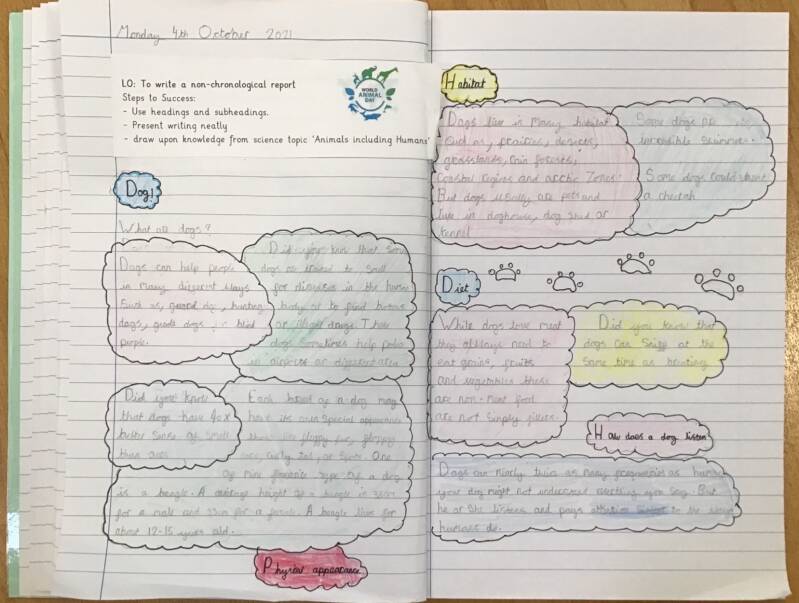 Monday 4th October 2021
LO: To write a non-chronological report
Steps to Success:
- Use headings and subheadings.
- Present writing neatly
- draw upon knowledge from science topic 'Animals including Humans'
WORLD
ANIMAL
DAY
Dog!
What are dogs?
Dogs can help people
in many different ways
Such as, guard dog, hunting
dogs, guide dogs blind
people.
Did you know that some
dogs are trained to Smell
for diseases in the human
body or to find
or drugs. These
dogs sometimes help police
in airports or different area
Did you know
that dogs have 40x
better Sense of Smell
than ours
Each breed of a dog may
have its own Special appearance
these like floppy floppy
curly tail, or Spots. One
of mine favourite type of a dog
is a beagle. A average height of a beagle is
for a male and 33cm for a female. A beagle lives for
about 12-15 years old.
Physical appearance
Habitat
Dogs live in many habitat
Such as, prairies, deserts,
grasslands, rain forests,
coastal regions and arctic Zones.
But dogs usually are pets and
live in doghouse, dog shed or
kennel
Some dogs are
incredible Swimmers.
Some dogs could
a cheetah
Diet
While dogs love meat
they always need to
eat grains, fruits
and vegetables these
are non-meat food
are not Simply fillers.
Did you know that
dogs can Sniff at the
Same time as breathing
How does a dog listen
Dogs can nearly twice as many frequencies as human
your dog might not understand everything you Say. But
he or She listens and pays attention to the ways
humans do.